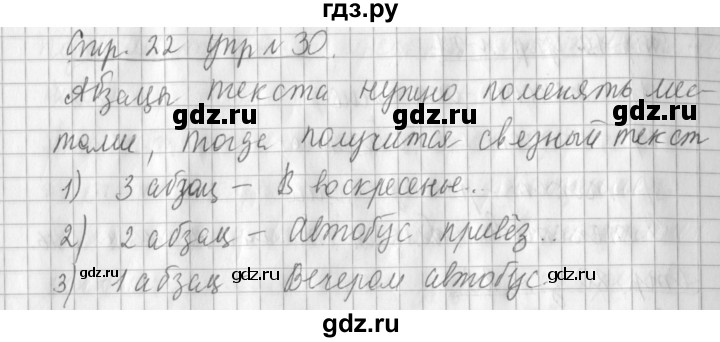 гдз.ру
Стр. 22 упр № 30.
Абзацы текста нужно поменять мес-
gdz.ru gdz.ru
тами, тогда получится связный текст
1) 3 абзац - В воскресенье..
gdz.ru gdz.ru
2) 2 абзац - Автобус привёз..
gdz.ru gdz.ru gdz.ru
3) 1 абзац Вечером автобус.
gdz.ru